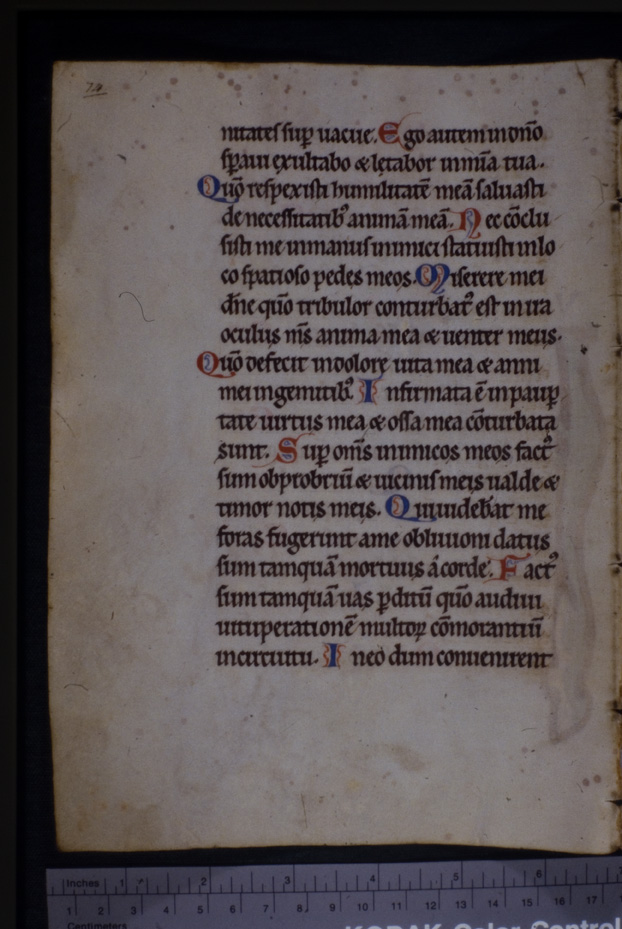 74
nitates sup̱ uacue. Ego autem in dn̄o
sp̱aui exultabo & lętabor in mīa tua.
Quō respexisti humilitatē meā saluasti
de necessitatib᾽ animā meā. Nec cōclu
sisti me in manus inimici statuisti in lo
co spatioso pedes meos. Miserere mei
dn̄e quō tribulor conturbat᾽ est in ira
oculus m̄s anima mea & uenter meus.
Quō defecit in dolore uita mea & anni
mei in gemitib᾽. Infirmata ē in paup̱
tate uirtus mea & ossa mea cōturbata
sunt. Sup̱ om̄s inimicos meos fact᾽
sum obprobriū & uicinis meis ualde &
timor notis meis. Qui uidebāt me
foras fugerunt a me obliuioni datus
sum tamquā mortuus a corde. Fact᾽
sum tamquā uas p̱ditū quō audiui
uituperationē multoꝝ cōmorantiū
in circuitu. In eo dum conuenirent
Inches 1 2 3 4 5 6
1 2 3 4 5 6 7 8 9 10 11 12 13 14 15 16 17
Centimeters
KODAK Color Control